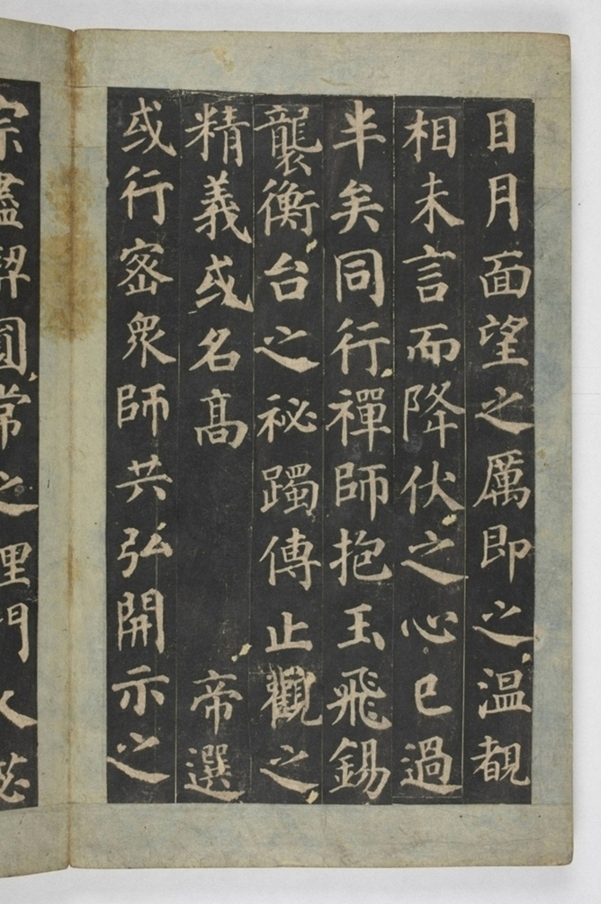 目月面望之厲即之温覩
相未言而降伏之心已過
半矣同行禪師抱玉飛錫
襲衡台之祕躅傳止觀之
精義或名髙　帝選
或行宻衆師共弘開示之
宗盡契圓常之理門人苾